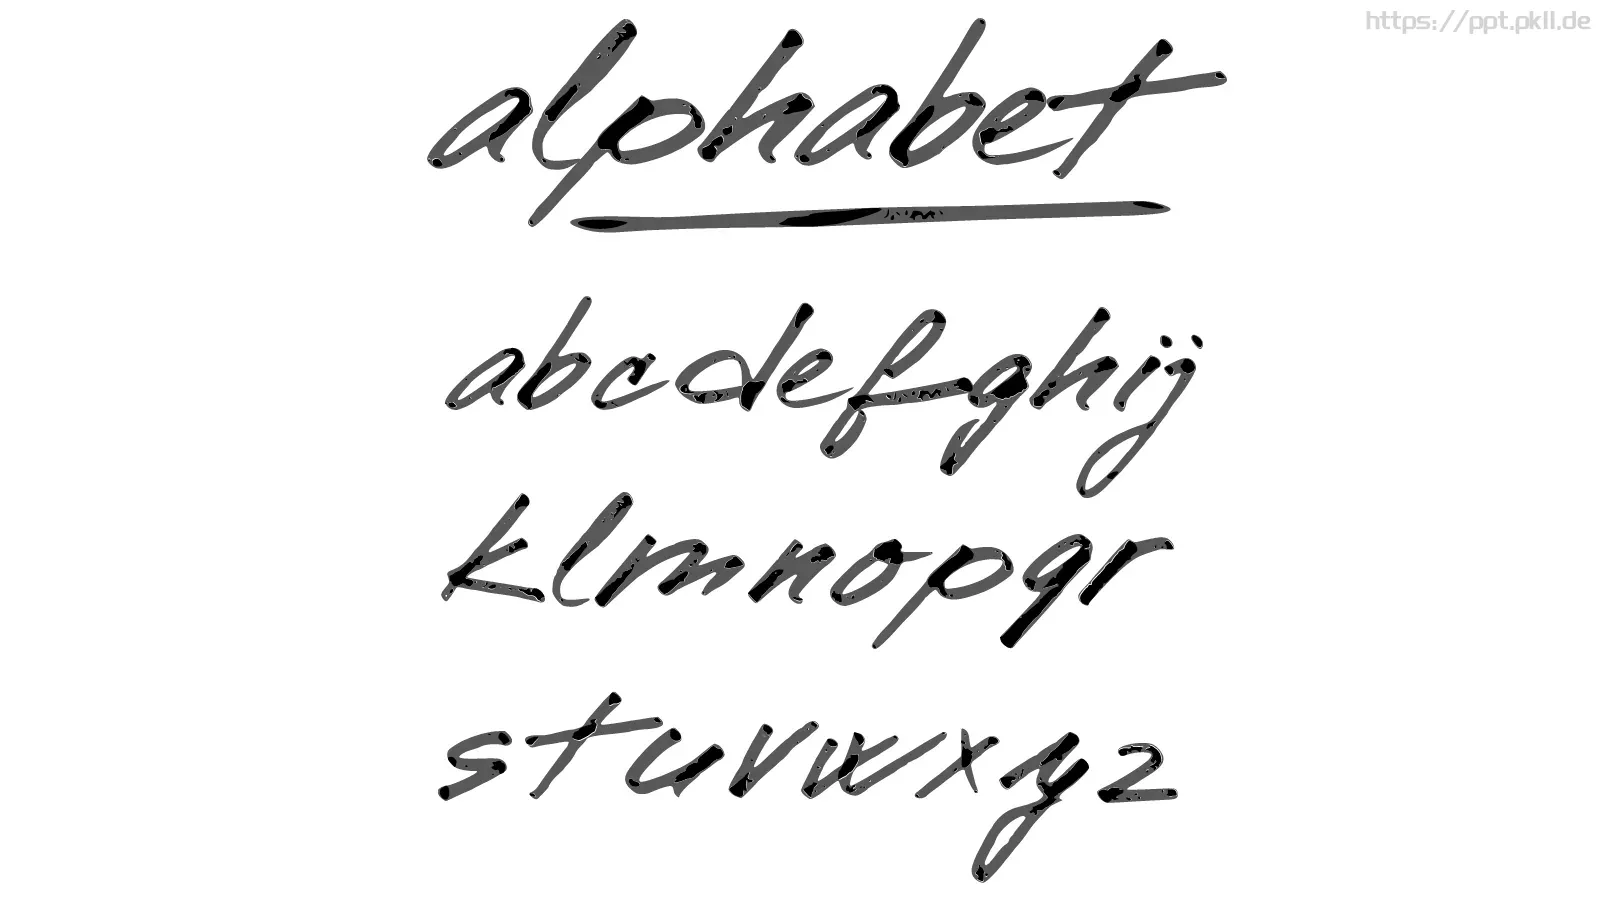 https://ppt.pkll.de
alphabet
abcdefghij
klmnopqr
stuvwxyz